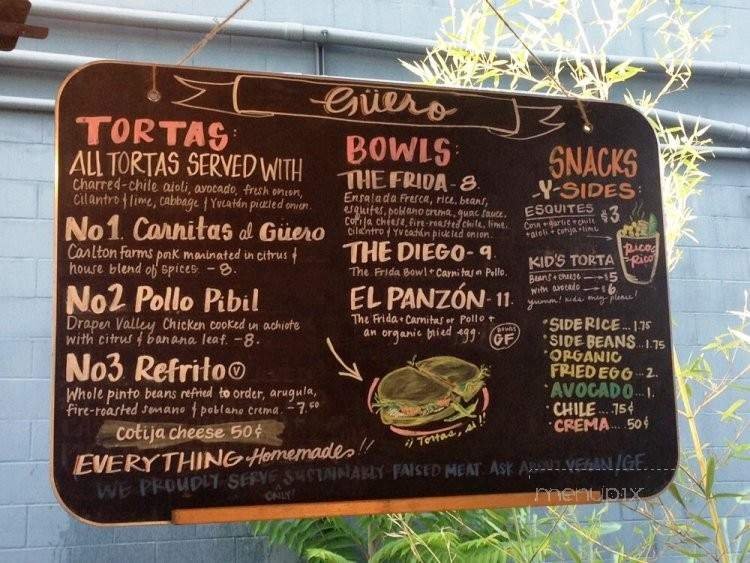 Güero
TORTAS:
ALL TORTAS SERVED WITH
Charred-chile aioli, avocado, fresh onion,
Cilantro & lime, cabbage & Yucatán pickled onion.
No1 Carnitas al Güero
Carlton Farms pork marinated in citrus &
house blend of spices. - 8.
No2 Pollo Pibil
Draper Valley Chicken cooked in achiote
with citrus & banana leaf. - 8.
No3 Refrito V
Whole pinto beans refried to order, arugula,
fire-roasted serrano & poblano crema. - 7.50
cotija cheese 50¢
EVERYTHING Homemade!!
WE PROUDLY SERVE SUSTAINABLY RAISED MEAT ONLY! ASK ABOUT VEGAN/GF
BOWLS:
THE FRIDA - 8.
Ensalada fresca, rice, beans,
esquites, poblano crema, guac sauce,
Cotija cheese, fire-roasted chile, lime,
cilantro & Yucatán pickled onion.
THE DIEGO - 9.
The Frida Bowl + Carnitas or Pollo.
EL PANZÓN - 11.
The Frida + Carnitas or Pollo +
an organic fried egg.
BOWLS GF
¡¡Tortas, sí!!
SNACKS
-Y- SIDES:
ESQUITES $3
Corn + garlic + chile
+ aioli + cotija + lime
RICO RICO
KID'S TORTA
Beans + cheese $5
with avocado $6
yumm! kids only please!
*SIDE RICE... 1.75
*SIDE BEANS... 1.75
*ORGANIC
FRIED EGG... 2.
*AVOCADO... 1.
*CHILE... 75¢
*CREMA... 50¢
menupix